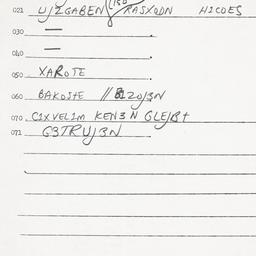 021 UJZGABEN RASXODN HICOES
030 —
040 —
050 XAROTE
060 BAKOJTE // BIZOJ3N
070 C1XVEL1M KEN3N GLEJBT
071 G3TRUJ3N